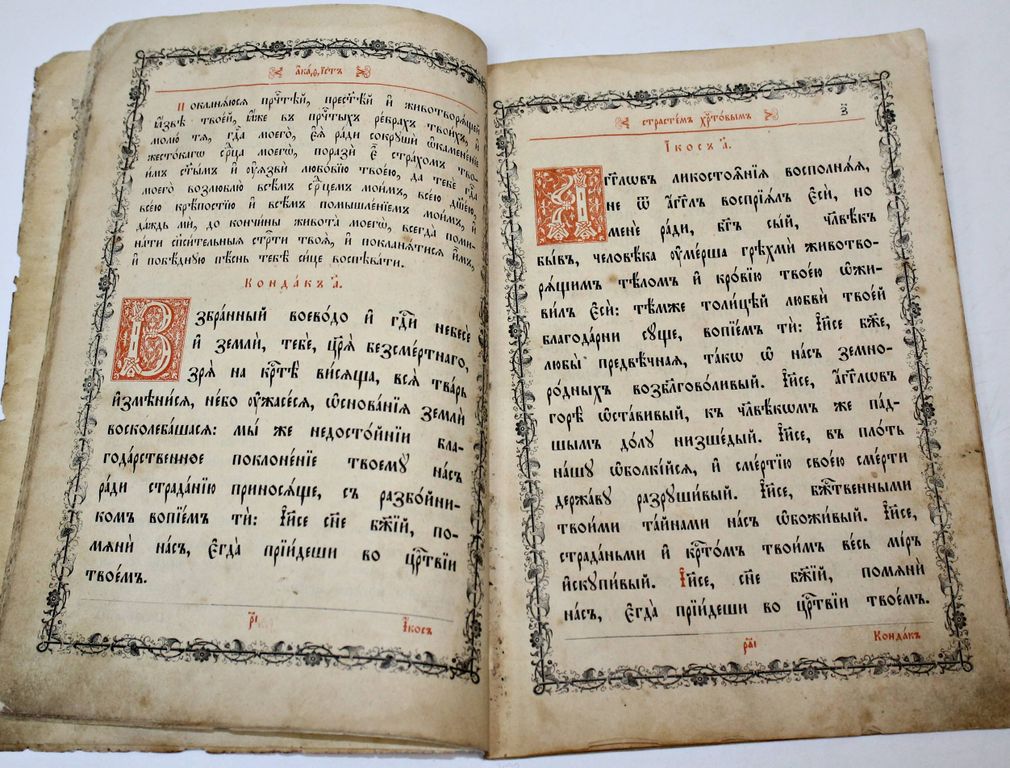 а҆ка́ѳїстъ
Покланѧ́юсѧ пречⷭ҇тѣй, прест҃ѣй и҆ животворѧ́щей
ꙗ҆́звѣ твое́й, ꙗ҆́же въ пречⷭ҇тыхъ ре́брахъ твои́хъ, и҆
молю́ тѧ, гдⷭ҇а моего̀, є҆ѧ̀ ра́ди сокрꙋшѝ ѡ҆камене́нїе
жесто́кагѡ се́рдца моегѡ̀, поразѝ є҆̀ стра́хомъ тво-
и́мъ ст҃ы́мъ и҆ ᲂу҆ѧзвѝ любо́вїю твое́ю, да тебѐ гдⷭ҇а
моего̀ возлюблю̀ всѣ́мъ се́рдцемъ мои́мъ, все́ю дш҃е́ю,
все́ю крѣ́постїю и҆ всѣ́мъ помышле́нїемъ мои́мъ, и҆
да́ждь мѝ, до кончи́ны живота̀ моегѡ̀, всегда̀ поми-
на́ти сп҃си́тельныѧ стрⷭ҇ти твоѧ̑, и҆ покланѧ́тисѧ и҆̀мъ,
и҆ побѣ́днꙋю пѣ́снь тебѣ̀ си́це воспѣва́ти.
Конда́къ а҃.
Взбра́нный воево́до и҆ гдⷭ҇и небесѐ
и҆ землѝ, тебѐ, цр҃ѧ̀ безсме́ртнаго,
зрѧ̀ на крⷭ҇тѣ̀ ви́сѧща, всѧ̀ тва́рь
и҆змѣни́сѧ, не́бо ᲂу҆жасе́сѧ, ѡ҆снова̑нїѧ землѝ
восколеба́шасѧ: мы́ же недосто́йнїи бла-
года́рственное поклоне́нїе твоемꙋ̀ на́съ
ра́ди страда́нїю приносѧ́ще, съ разбо́йни-
комъ вопїе́мъ тѝ: І҆и҃се сн҃е бж҃їй, по-
мѧнѝ на́съ, є҆гда̀ прїи́деши во црⷭ҇твїи
твое́мъ.
р҃і
І҆́косъ
страстє́мъ хрⷭ҇то́вымъ
з҃
І҆́косъ а҃.
А҆́гг҃лѡвъ ликостоѧ̑нїѧ восполнѧ́ѧ,
не ѿ а҆́гг҃лъ воспрїѧ́лъ є҆сѝ, но
менѐ ра́ди, бг҃ъ сы́й, чл҃вѣ́къ
бы́въ, человѣ́ка ᲂу҆ме́рша грѣхмѝ животво-
рѧ́щимъ тѣ́ломъ и҆ кро́вїю твое́ю ѡ҆жи-
ви́лъ є҆сѝ: тѣ́мже толи́цѣй любвѝ твое́й
благода́рни сꙋ́ще, вопїе́мъ тѝ: І҆и҃се бж҃е,
любы̀ предвѣ́чнаѧ, та́кѡ ѡ҆ на́съ земно-
ро́дныхъ возбл҃говоли́вый. І҆и҃се, а҆́гг҃лѡвъ
горѣ̀ ѡ҆ста́вивый, къ чл҃вѣ́кѡмъ же па́д-
шымъ до́лꙋ низше́дый. І҆и҃се, въ пло́ть
на́шꙋ ѡ҆болкі́йсѧ, и҆ сме́ртїю свое́ю сме́рти
держа́вꙋ разрꙋши́вый. І҆и҃се, бж҃е́ственными
твои́ми та́йнами на́съ ѡ҆божи́вый. І҆и҃се,
страда́ньми и҆ крⷭ҇то́мъ твои́мъ ве́сь мі́ръ
и҆скꙋпи́вый. І҆и҃се, сн҃е бж҃їй, помѧнѝ
на́съ, є҆гда̀ прїи́деши во црⷭ҇твїи твое́мъ.
ра҃і
Конда́къ